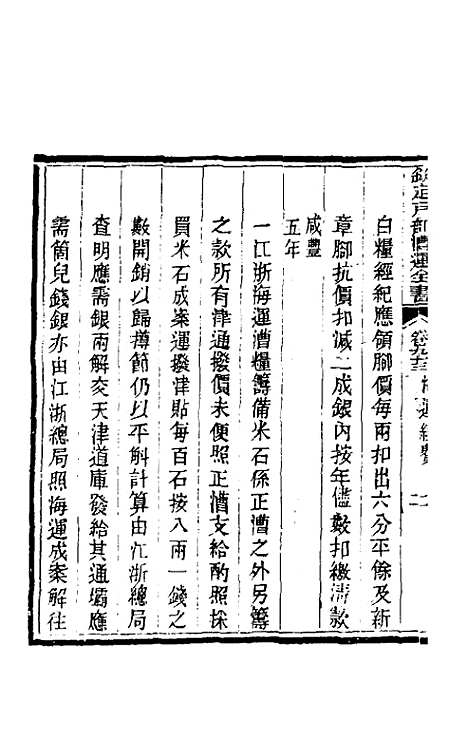 欽定戶部漕運全書 卷九十三 海運經費 二
白糧經紀應領腳價每兩扣出六分平餘及新
章腳抗價扣減二成銀內按年儘數扣繳清款
咸豐
五年
一江浙海運漕糧籌備米石係正漕之外另籌
之款所有津通撥價未便照正漕支給酌照採
買米石成案運撥津貼每百石按八兩一錢之
數開銷以歸撙節仍以平斛計算由江浙總局
查明應需銀兩解交天津道庫發給其通壩應
需箇兒錢銀亦由江浙總局照海運成案解往